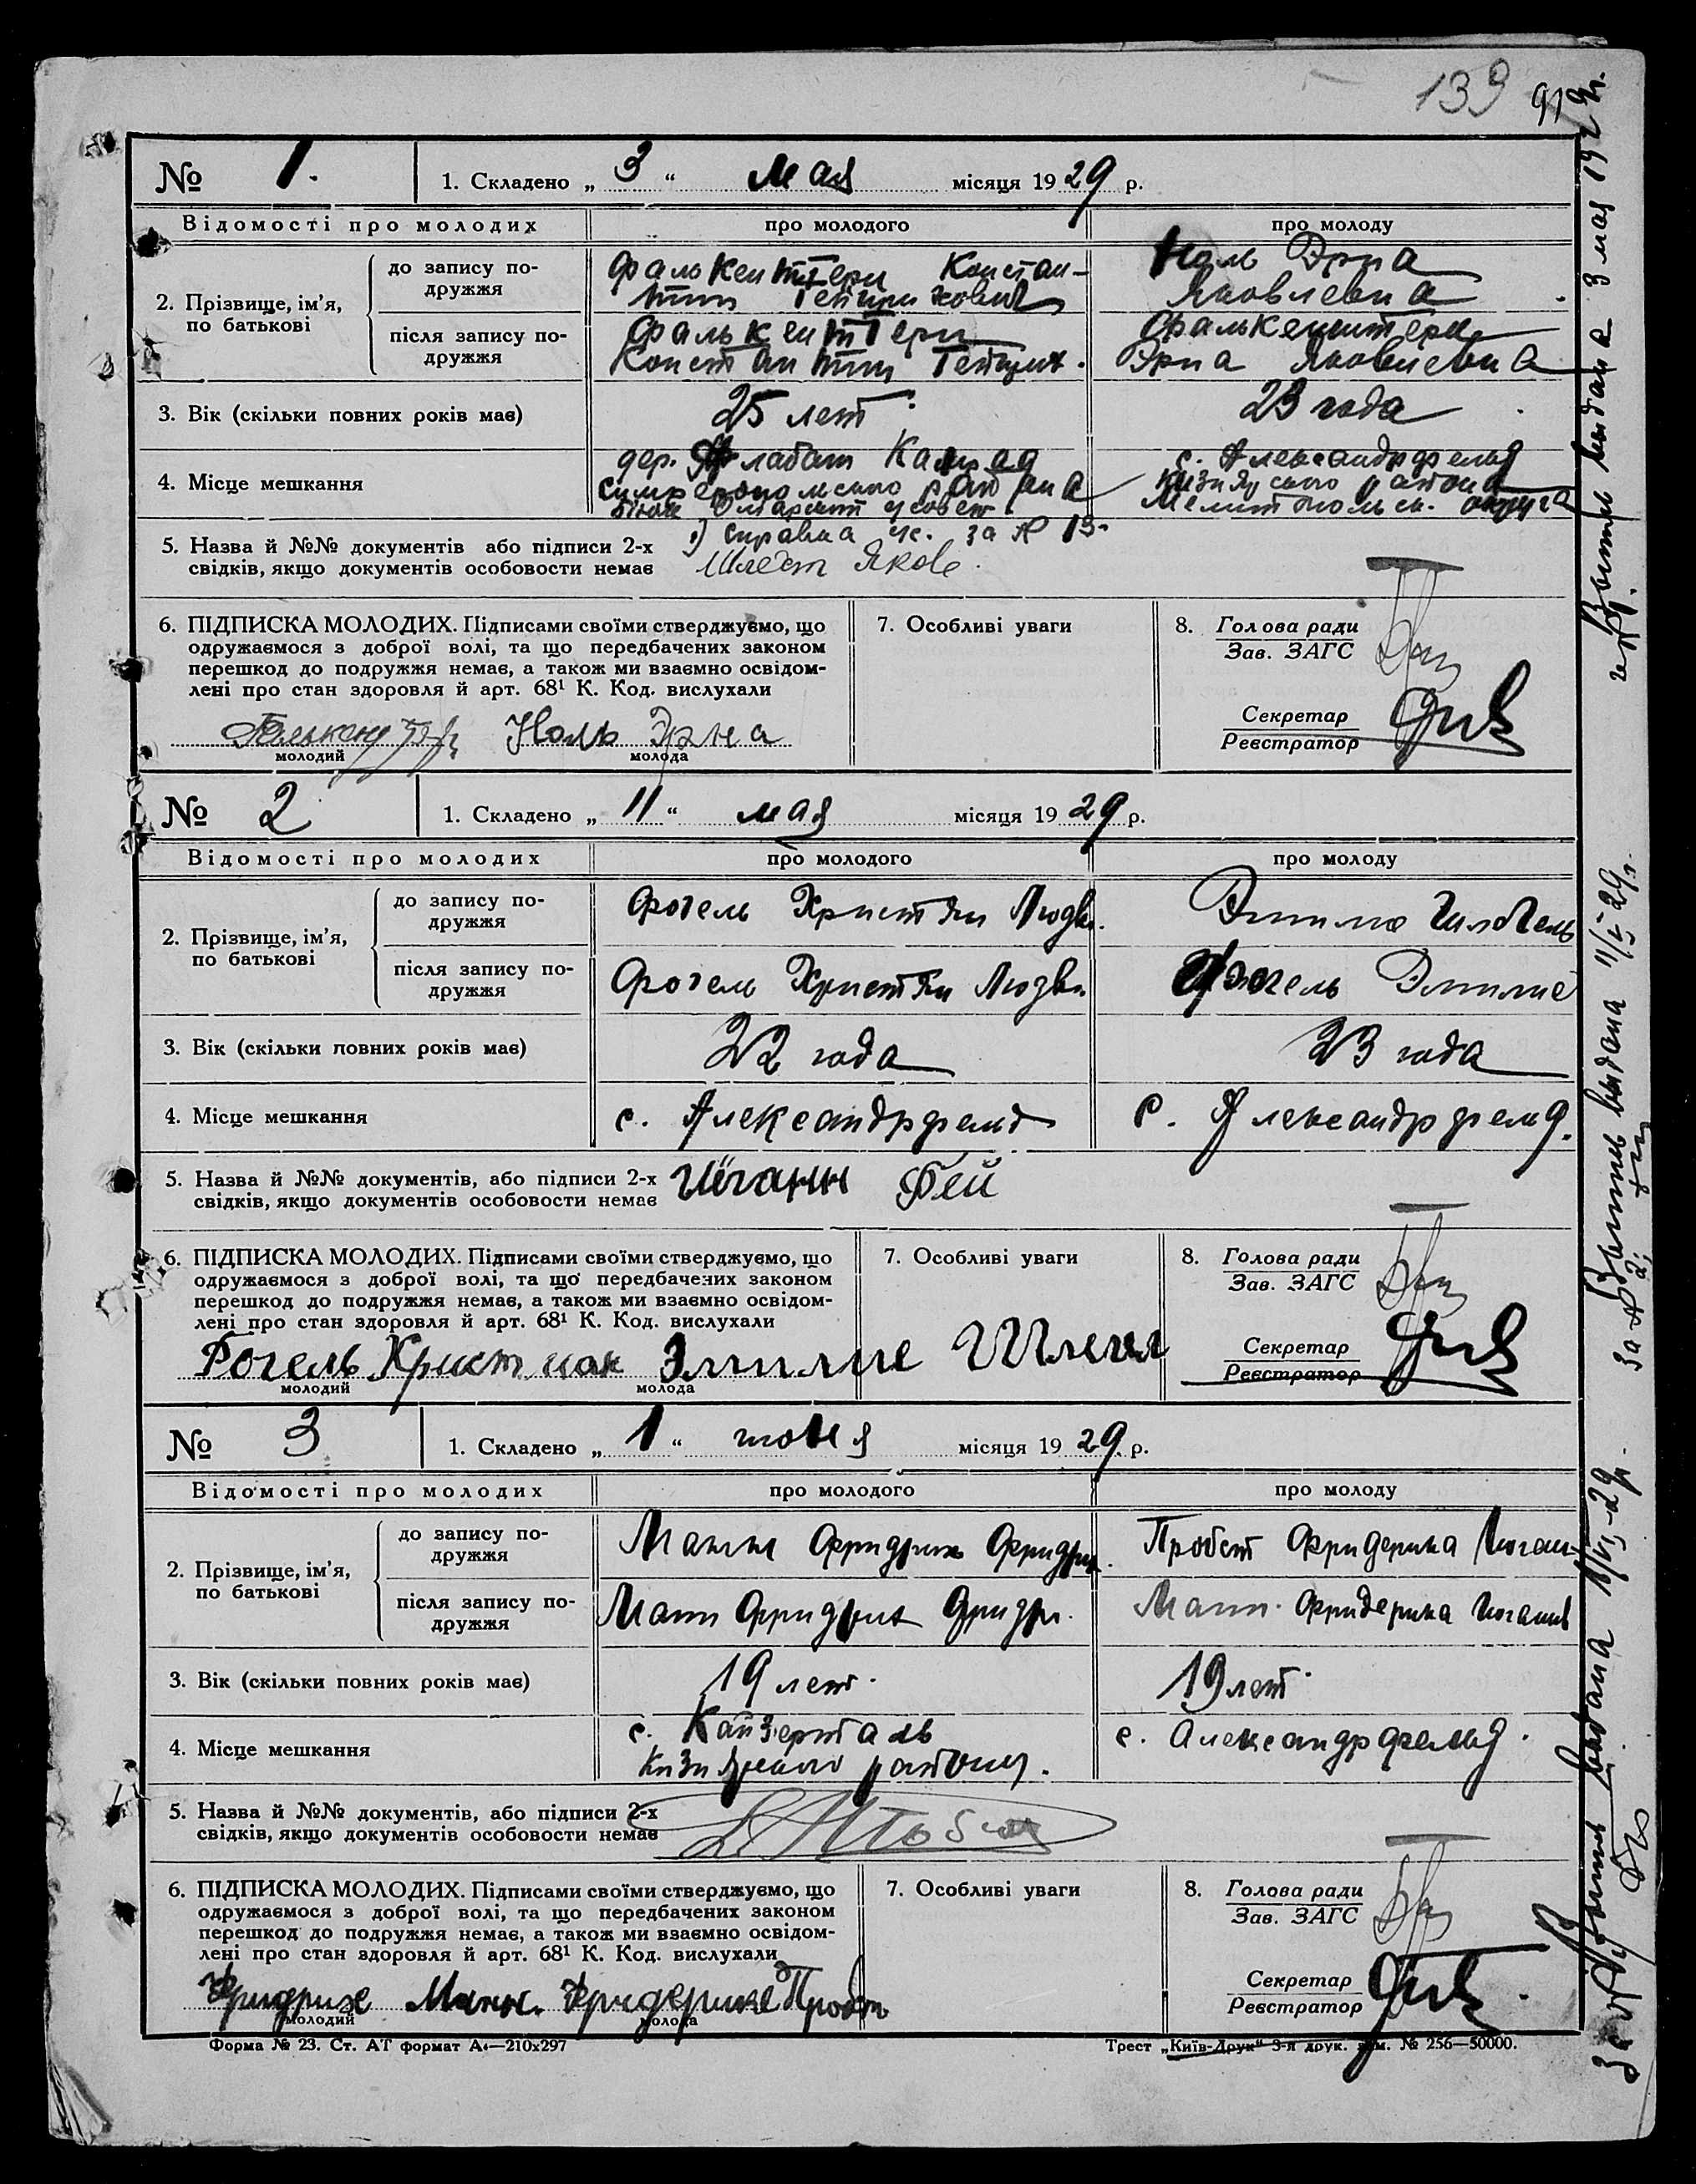 139 91
№ 1. 1. Складено „ 3 “ мая місяця 19 29 р.
Відомості про молодих про молодого про молоду
2. Прізвище, ім’я, по батькові
до запису подружжя
Фалькенштерн Констан-
тин
Ноль Эрна
Яковлевна
після запису подружжя
Фалькенштерн
Константин
Фалькенштерн
Эрна Яковлевна
3. Вік (скільки повних років має) 25 лет 23 года
4. Місце мешкання
дер.
Симферопольского района
с. Александрфельд
Кизиярского района
Мелитопольск. округа
5. Назва й №№ документів або підписи 2-х
свідків, якщо документів особовости немає
1) справка за № 13
Яков
6. ПІДПИСКА МОЛОДИХ. Підписами своїми стверджуємо, що
одружаємося з доброї волі, та що передбачених законом
перешкод до подружжя немає, а також ми взаємно освідом-
лені про стан здоровля й арт. 68¹ К. Код. вислухали
Ноль Эрна
молодий молода
7. Особливі уваги
8. Голова ради
Зав. ЗАГС
Секретар
Реєстратор
№ 2 1. Складено „ 11 “ мая місяця 19 29 р.
Відомості про молодих про молодого про молоду
2. Прізвище, ім’я, по батькові
до запису подружжя
Фогель Християн Людв.
Эмилие
після запису подружжя
Фогель Християн Людви
Фогель Эмилие
3. Вік (скільки повних років має) 22 года 23 года
4. Місце мешкання с. Александрфельд с. Александрфельд.
5. Назва й №№ документів, або підписи 2-х
свідків, якщо документів особовости немає
Иоганн Фей
6. ПІДПИСКА МОЛОДИХ. Підписами своїми стверджуємо, що
одружаємося з доброї волі, та що передбачених законом
перешкод до подружжя немає, а також ми взаємно освідом-
лені про стан здоровля й арт. 68¹ К. Код. вислухали
Фогель Христиан Эмилие
молодий молода
7. Особливі уваги
8. Голова ради
Зав. ЗАГС
Секретар
Реєстратор
№ 3 1. Складено „ 1 “ июня місяця 19 29 р.
Відомості про молодих про молодого про молоду
2. Прізвище, ім’я, по батькові
до запису подружжя
Манн Фридрих Фридрих.
Пробст Фридерика Иоган
після запису подружжя
Манн Фридрих Фридр.
Манн Фридерика Иоганов
3. Вік (скільки повних років має) 19 лет. 19 лет.
4. Місце мешкання
с. Кайзерталь
Кизиярского района.
с. Александрфельд.
5. Назва й №№ документів, або підписи 2-х
свідків, якщо документів особовости немає
6. ПІДПИСКА МОЛОДИХ. Підписами своїми стверджуємо, що
одружаємося з доброї волі, та що передбачених законом
перешкод до подружжя немає, а також ми взаємно освідом-
лені про стан здоровля й арт. 68¹ К. Код. вислухали
Фридрих Манн. Фридерике Пробст
молодий молода
7. Особливі уваги
8. Голова ради
Зав. ЗАГС
Секретар
Реєстратор
Форма № 23. Ст. АТ формат А₄—210х297
Трест „Київ-Друк“ 3-я друк. зам. № 256—50000.
Выпись выдана 3 мая 1929г.
за № 1.
Выпись выдана 11/V-29г.
за № 2
Выпись выдана 1/VI-29г.
за № 3